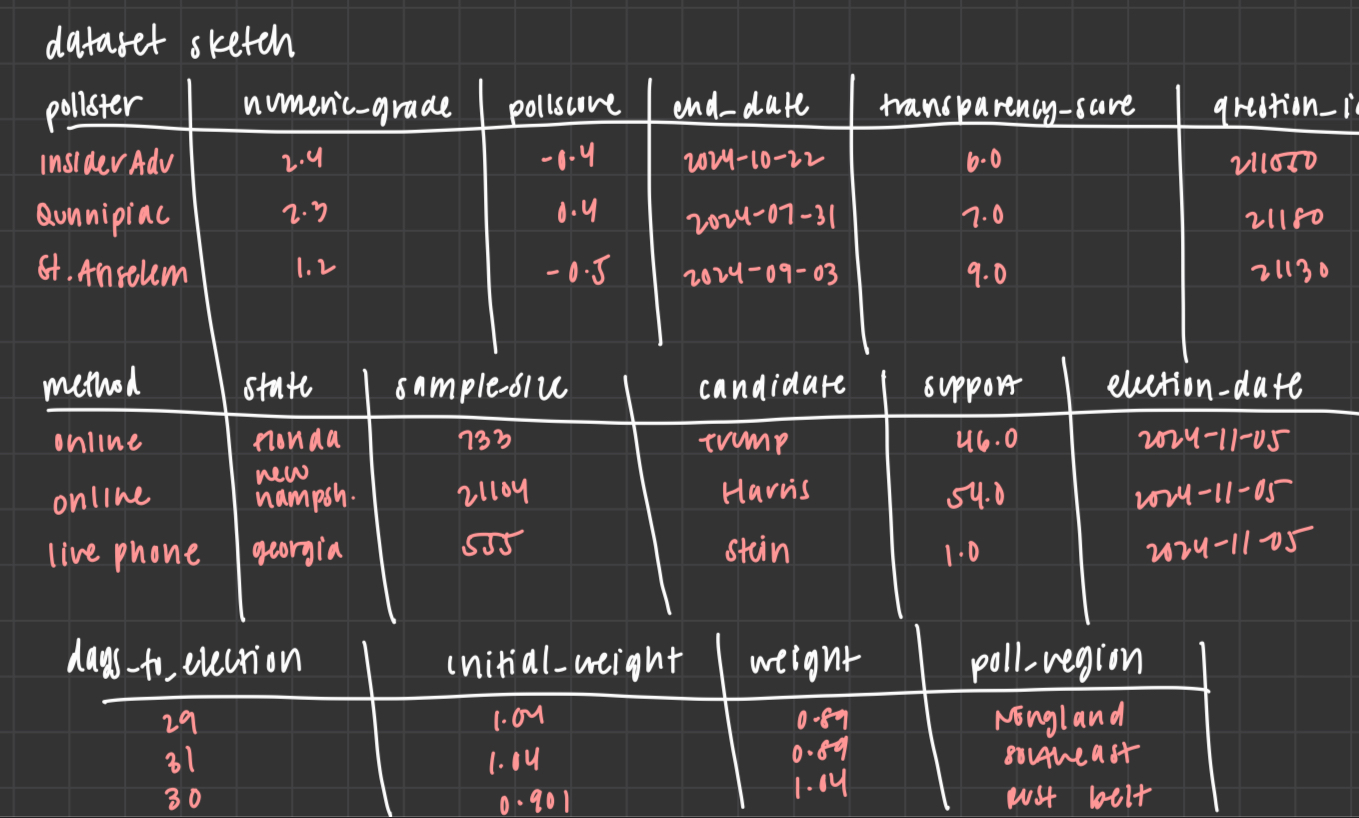 dataset sketch
pollster numeric_grade pollscore end_date transparency_score question_i
InsiderAdv 2.4 -0.4 2024-10-22 6.0
Qunnipiac 2.3 0.4 2024-07-31 7.0 21180
St. Anselem 1.2 -0.5 2024-09-03 9.0 21130
method state sample_size candidate support election_date
online florida 733 Trump 46.0 2024-11-05
new
online hampsh. 21104 Harris 54.0 2024-11-05
live phone georgia 555 Stein 1.0 2024-11-05
days_to_election initial_weight weight poll_region
29 1.04 0.89 NEngland
31 1.04 0.89 southeast
30 0.901 1.04 rust belt